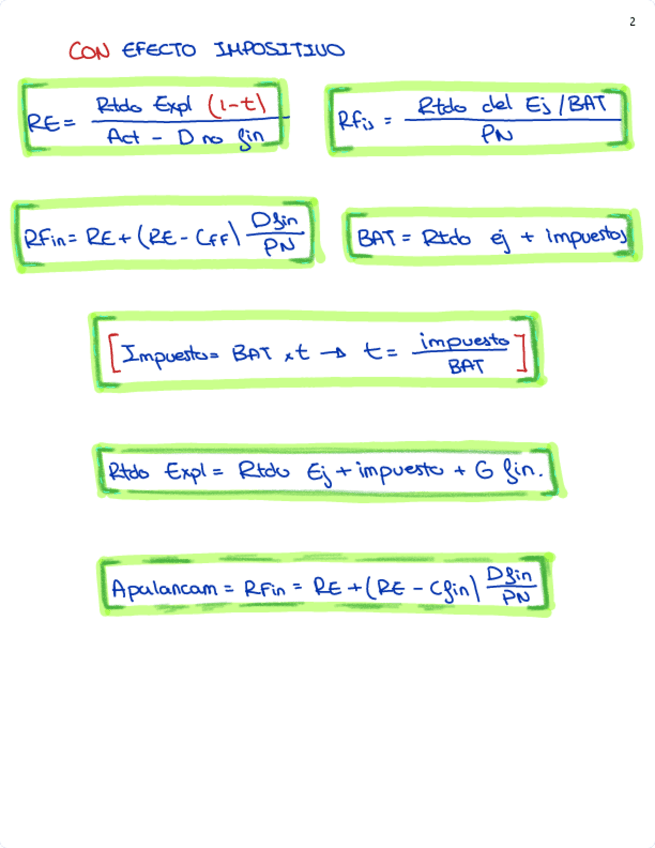 2
CON EFECTO IMPOSITIVO
RE = Rtdo Expl (1-t) / Act - D no fin
Rfis = Rtdo del Ej / BAT / PN
RFin = RE + (RE - CFF) Dfin / PN
BAT = Rtdo ej + impuestos
[Impuesto = BAT x t → t = impuesto / BAT]
Rtdo Expl = Rtdo Ej + impuesto + G fin.
Apalancam = RFin = RE + (RE - Cfin) Dfin / PN